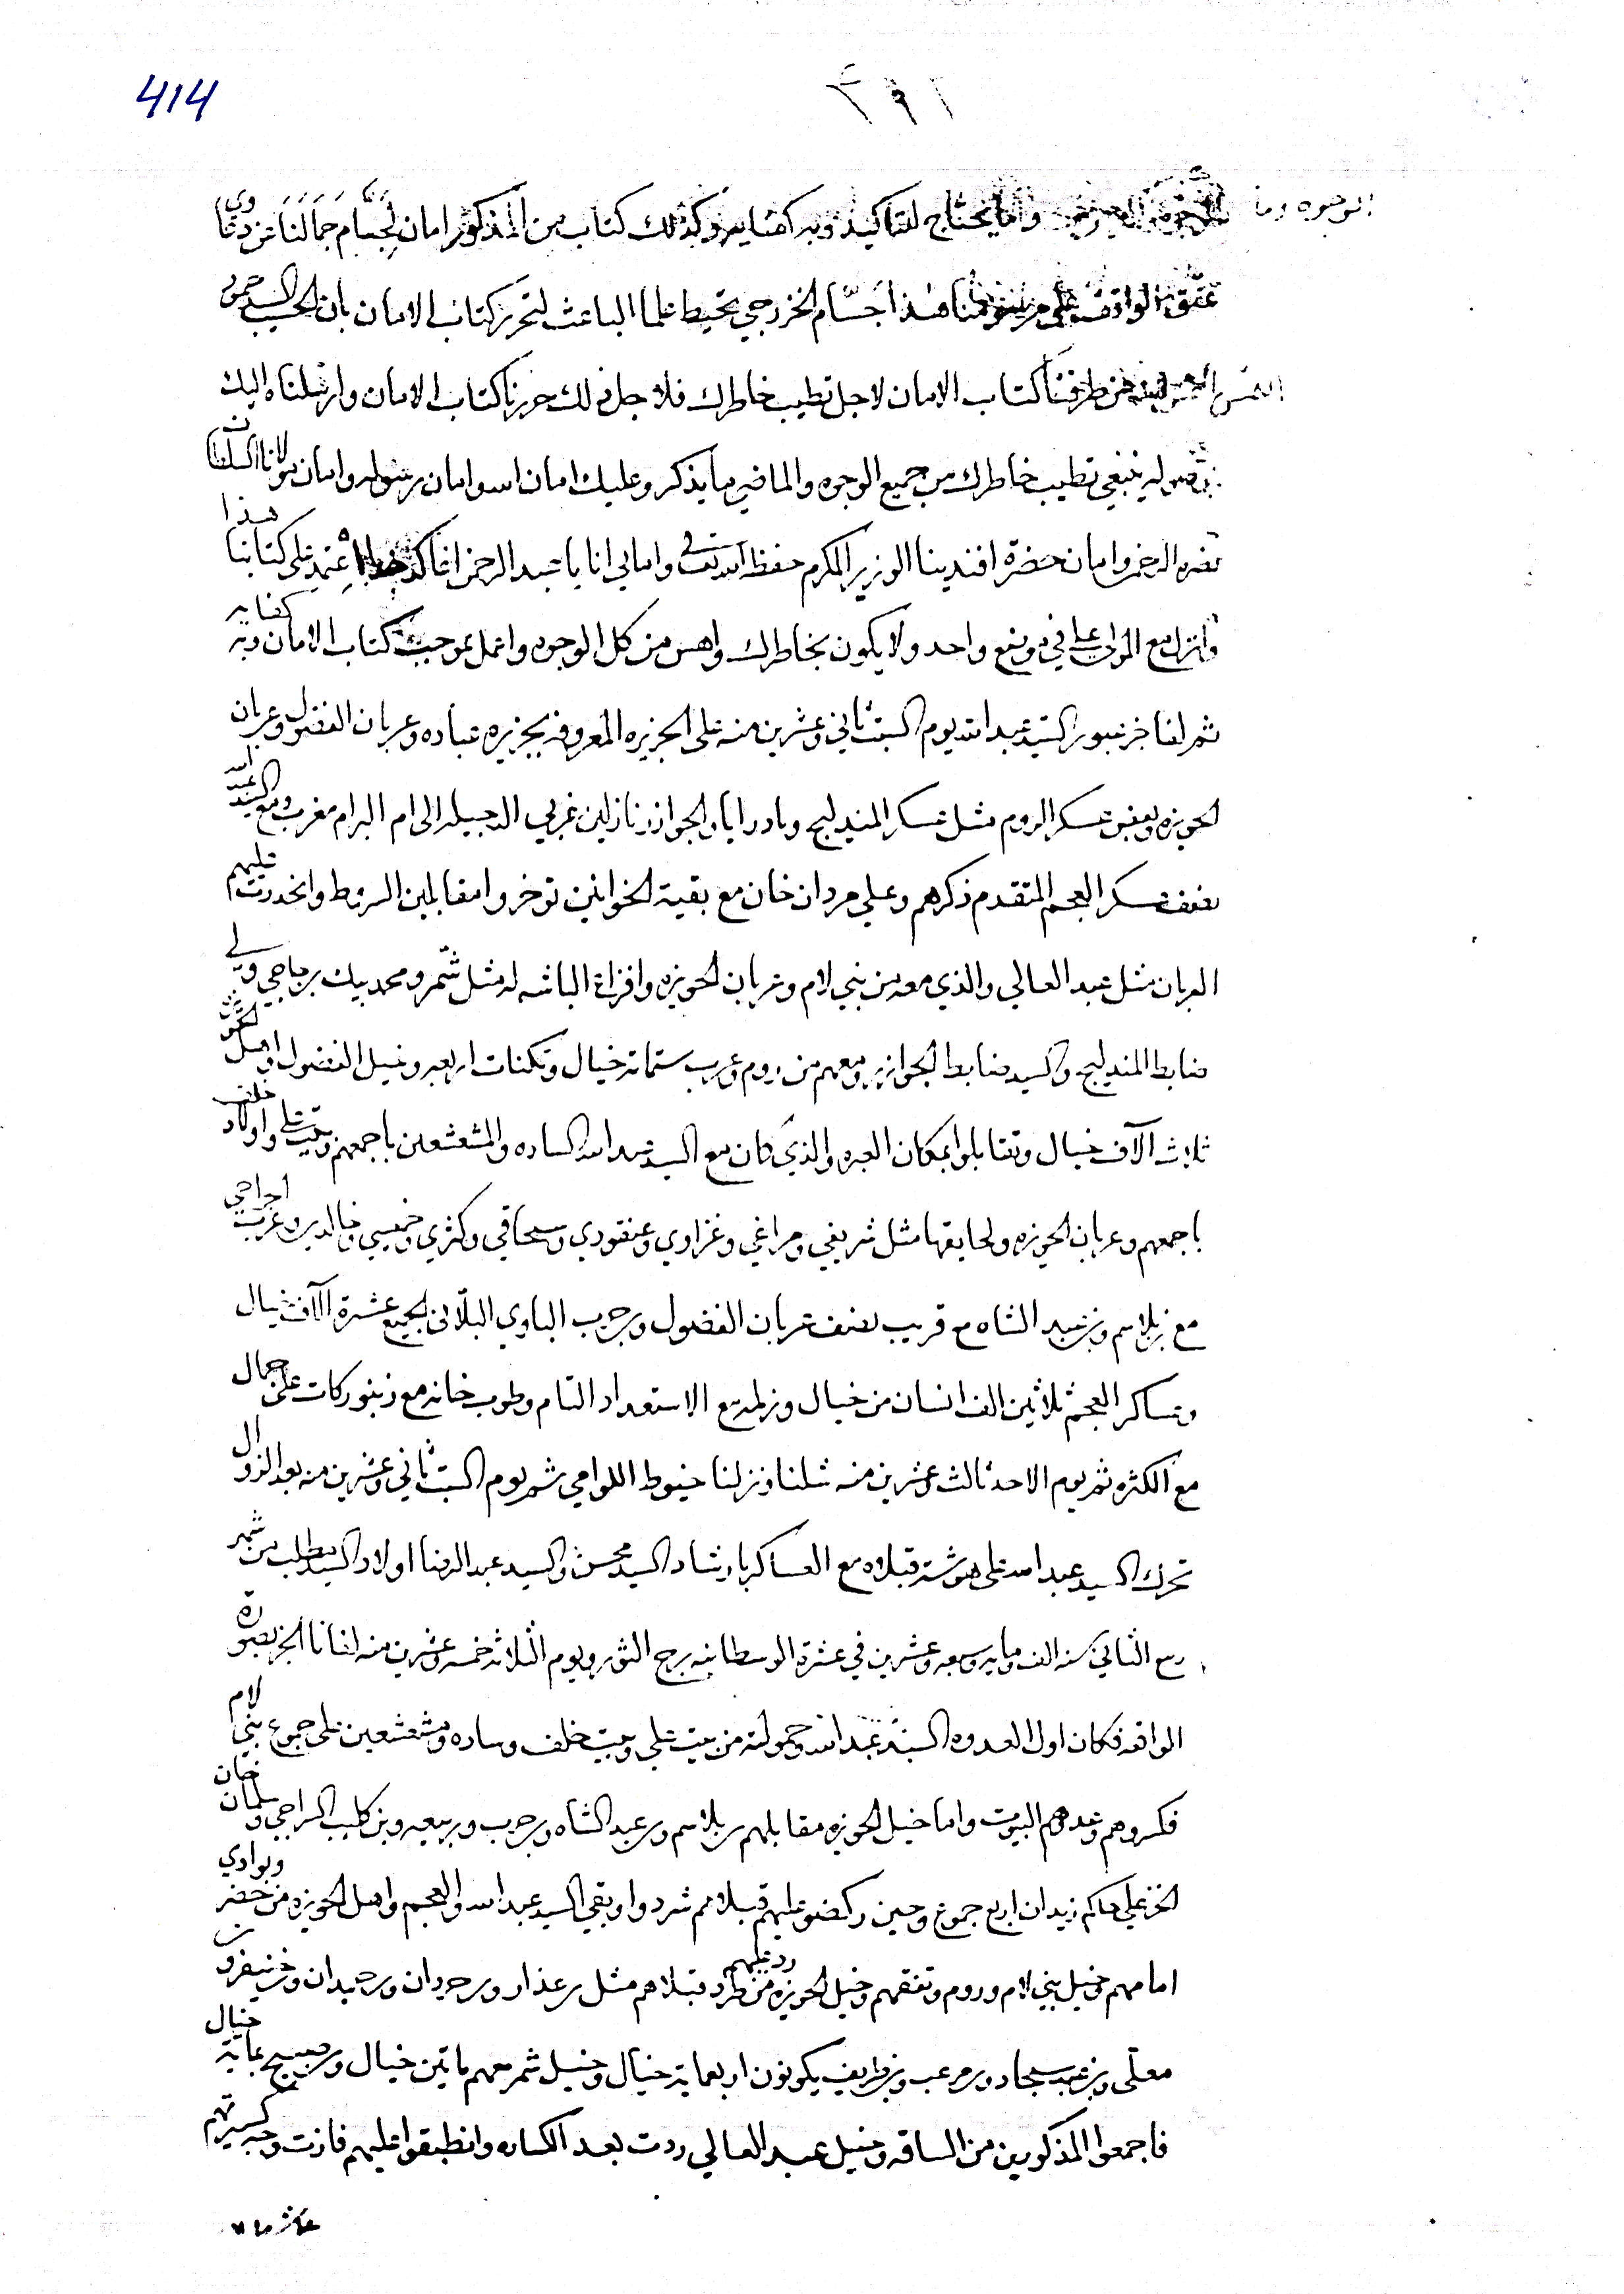 414
٣٩٢
الوجوه وما وما يحتاج للتاكيد وبه كفايه وكذلك كتاب من المذكور امان لجسام جمالنا
الواقف على هذا جسام الخزرجي تحيط علما الباعث لتحرير كتاب الامان بان الحسيب السيد
من طرفنا كتاب الامان لاجل تطيب خاطرك فلاجل ذلك حررنا كتاب الامان وارسلناه اليك
ينبغي تطيب خاطرك من جميع الوجوه والماضي ما يذكر وعليك امان الله وامان رسوله وامان مولانا السلطان
نصره الرحمن وامان حضرة افندينا الوزير المكرم حفظه الله تعالى واماني انا يا عبد الرحمن اغا اعتمد على كتابنا هذا
وانزل مع المولى علي في موضع واحد ولا يكون بخاطرك واهس من كل الوجوه واعمل بموجب كتاب الامان وبه كفايه
ثم لفا خبر عبور السيد عبد الله يوم السبت ثاني وعشرين منه على الجزيره المعروفه بجزيره عباده وعربان الفضول وعربان
الحويزه وبعض عسكر الروم مثل عسكر المندليج وبادرايا والجوازر نازلين غربي الدجيله الى ام البرام مغرب ومع السيد عبد الله
نصف عسكر العجم المتقدم ذكرهم وعلي مردان خان مع بقية الخوانين توخروا مقابلين السريط وانحدرت عليهم
العربان مثل عبد العالي والذي معه من بني لام وعربان الحويزه وافزاع الباشه له مثل شمر ومحمد بيك برباجي وولي
ضابط المندليج والسيد ضابط الجوازر ومعهم من روم وعرب ستماية خيال وتكنات اربعه وخيل الفضول واهل
ثلاث آلاف خيال وتقابلوا بمكان العبره والذي كان مع السيد عبد الله الساده والمشعشعين باجمعهم وبيت علي واولاد خلف
باجمعهم وعربان الحويزه ولحايقها مثل شريفي ومراغي وغزاوي وعنقودي وسحاقي وكثري وخميسي وخالدي وعرب
مع بن بلاسم وبن عبد الشاه مع قريب نصف عربان الفضول وبن حرب الباوي الجميع عشرة آلاف خيال
وعساكر العجم ثلاثين الف انسان من خيال وزلمه مع الاستعداد التام وطوب خانه مع زنبوركات على جمال
مع الكثره ثم يوم الاحد ثالث وعشرين منه شلنا ونزلنا خيوط اللوامي ثم يوم السبت ثاني وعشرين منه بعد الزوال
تحرك السيد عبد الله على هوشة قبلاه مع العساكر بارشاد السيد محسن والسيد عبد الرضا اولاد السيد مطلب من شهر
ربيع الثاني سنه الف ومايه وسبعه وعشرين في عشرة الوسطانيه برج الثور ويوم الثلاثه خمسه وعشرين منه لفانا الخبر بصورة
الواقعه فكان اول العدوه السيد عبد الله وحمولته من بيت علي وبيت خلف وساده ومشعشعين على جموع بني لام
فكسروهم وعدوهم البيوت واما خيل الحويزه مقابلهم بن بلاسم وبن عبد الشاه وبن حرب وربيعه وبن كليب السراجي وسلمان خان
الخزعلي حاكم زيدان اربع جموع وحين ركضو عليهم قبلاهم شردوا وبقي السيد عبد الله والعجم واهل الحويزه من حضر وبوادي
امامهم خيل بني لام وروم وتفقهم وخيل الحويزه من طرد رد عليهم قبلاهم مثل بن عذار وبن حردان وبن حميدان
معلى وبن عبد سجاد وبن مرعب وبن طريف يكونون اربعماية خيال وخيل شمر معهم ماتين خيال بماية خيال
فاجمعوا المذكورين من الساقه وخيل عبد العالي ردت بعد الكساره وانطبقوا عليهم فازت